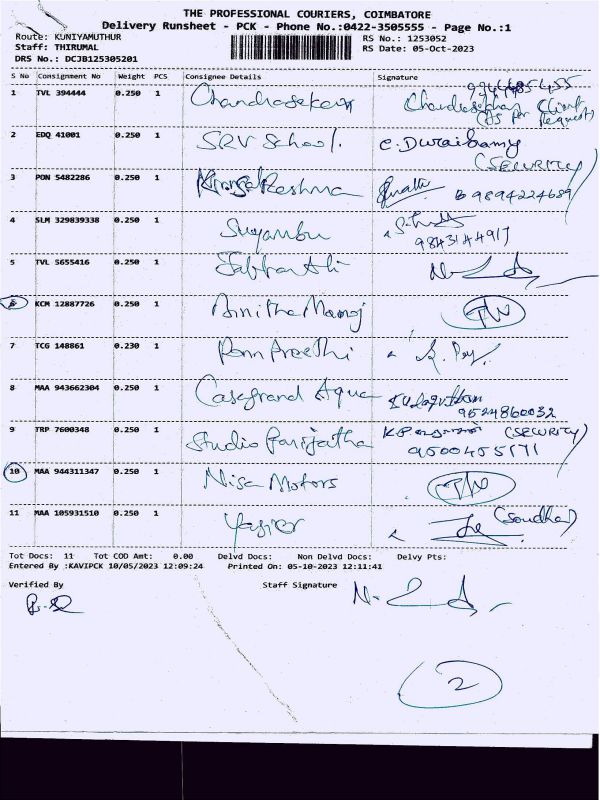 THE PROFESSIONAL COURIERS, COIMBATORE
Delivery Runsheet - PCK - Phone No.:0422-3505555 - Page No.:1
Route: KUNIYAMUTHUR RS No.: 1253052
Staff: THIRUMAL RS Date: 05-Oct-2023
DRS No.: DCJB125305201
S No Consignment No Weight PCS Consignee Details Signature
1 TVL 394444 0.250 1 Chandrasekar Chandrasekhar (As Per Client Request)
2 EDQ 41001 0.250 1 SRV School. C. Duraisamy
(SECURITY)
3 PDN 5482286 0.250 1 Reshma 9894224689
4 SLM 329839338 0.250 1 Suyambu
9843144917
5 TVL 5655416 0.250 1 Jabbar Ali
6 KCM 12887726 0.250 1 Amitha Manoj
7 TCG 148861 0.230 1 Ponn Preethi
8 MAA 943662304 0.250 1 Casagrand Aqua
9524860032
9 TRP 7600348 0.250 1 Studio Parijatha (SECURITY)
9500455171
10 MAA 944311347 0.250 1 Nisa Motors
11 MAA 105931510 0.250 1 Yasier
Tot Docs: 11 Tot COD Amt: 0.00 Delvd Docs: Non Delvd Docs: Delvy Pts:
Entered By :KAVIPCK 10/05/2023 12:09:24 Printed On: 05-10-2023 12:11:41
Verified By Staff Signature
2